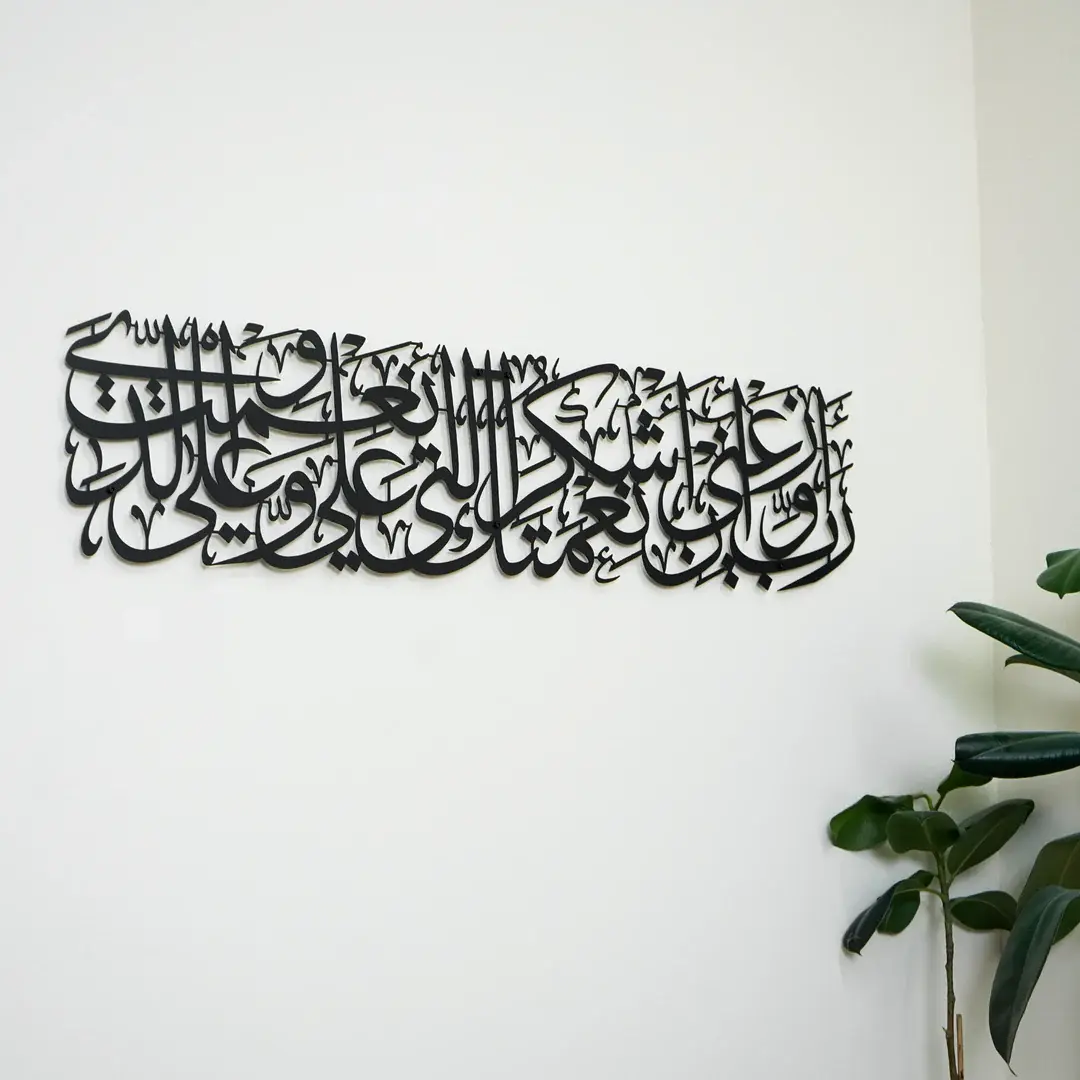 رَبِّ أَوْزِعْنِي أَنْ أَشْكُرَ نِعْمَتَكَ الَّتِي أَنْعَمْتَ عَلَيَّ وَعَلَى وَالِدَيَّ